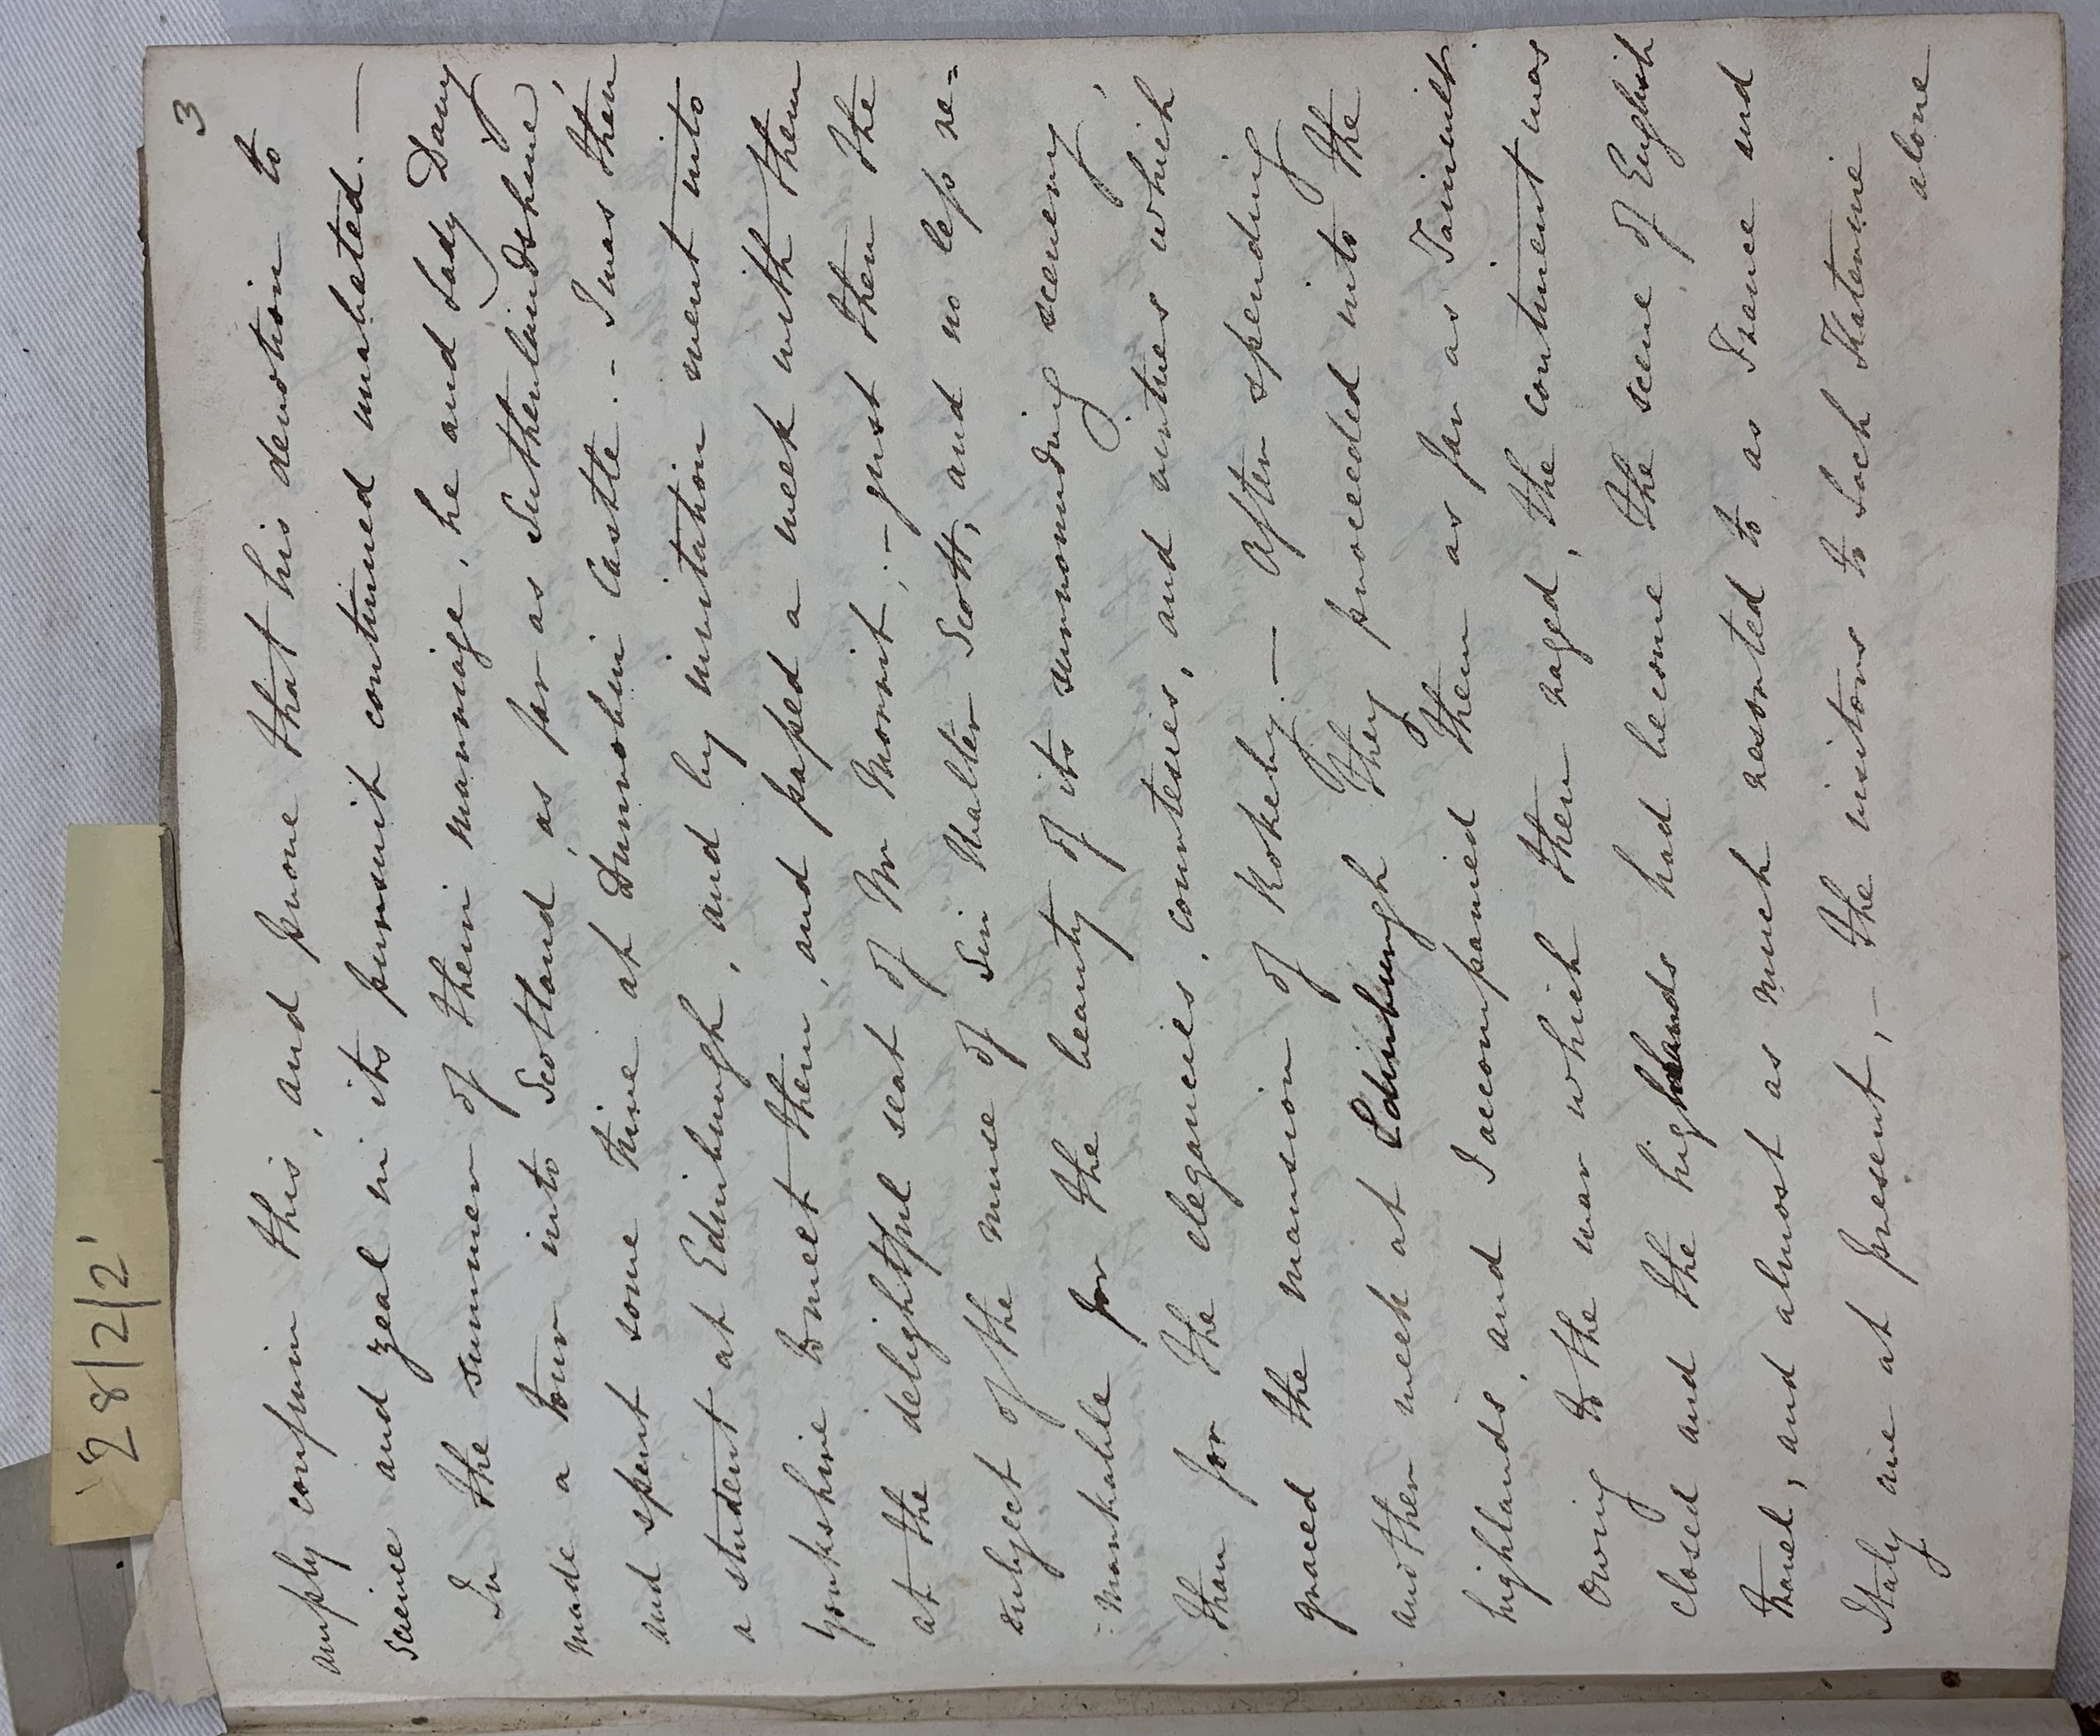 3
amply confirm this, and prove that his devotion to
science and zeal in its pursuit continued unabated. —
In the summer of their marriage, he and Lady Davy
made a tour into Scotland, as far as Sutherlandshire,
and spent some time at Dunrobin Castle. - I was then
a student at Edinburgh, and by invitation went into
Yorkshire to meet them, and passed a week with them
at the delightful seat of Mr Morrit; - just then the
subject of the muse of Sir Walter Scott, and no less re=
=markable for the beauty of its surrounding scenery,
than for the elegancies, courtesies, and virtues which
graced the mansion of Rokeby. — After spending
another week at Edinburgh they proceeded into the
highlands, and I accompanied them as far as Taimilt.
Owing to the war which then raged, the continent was
closed and the highlands had become the scene of English
travel, and almost as much resorted to as France and
Italy are at present, - the visitors to Loch Katerine
alone
28/2/2